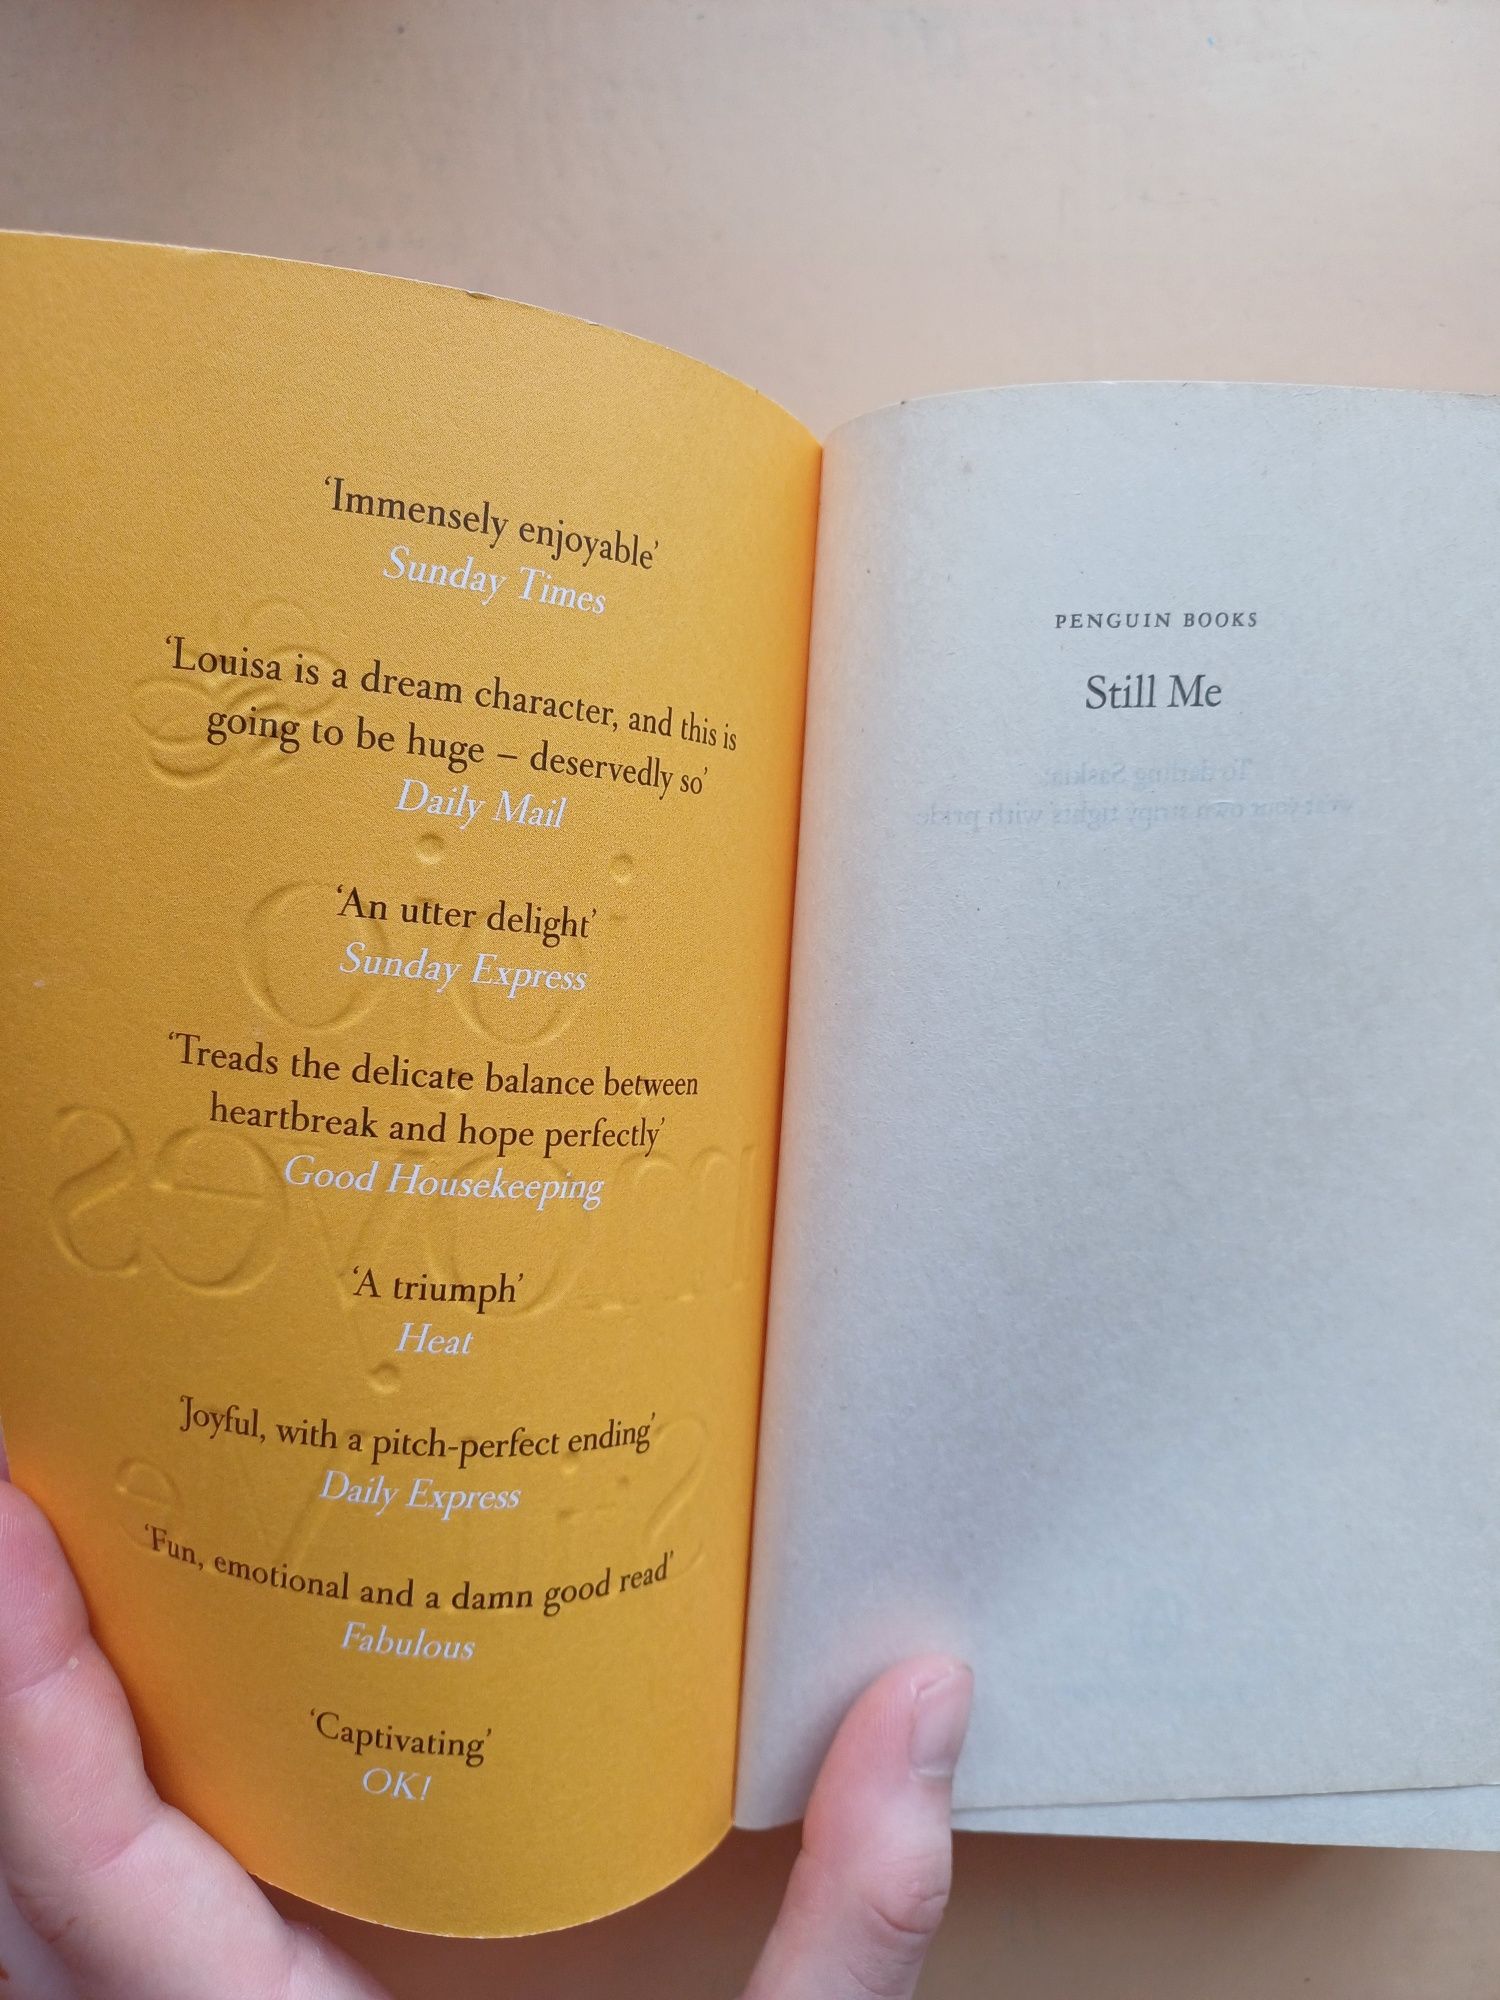 ‘Immensely enjoyable’
Sunday Times
‘Louisa is a dream character, and this is
going to be huge – deservedly so’
Daily Mail
‘An utter delight’
Sunday Express
‘Treads the delicate balance between
heartbreak and hope perfectly’
Good Housekeeping
‘A triumph’
Heat
‘Joyful, with a pitch-perfect ending’
Daily Express
‘Fun, emotional and a damn good read’
Fabulous
‘Captivating’
OK!
PENGUIN BOOKS
Still Me
To darling Saskia:
wear your own stripy tights with pride